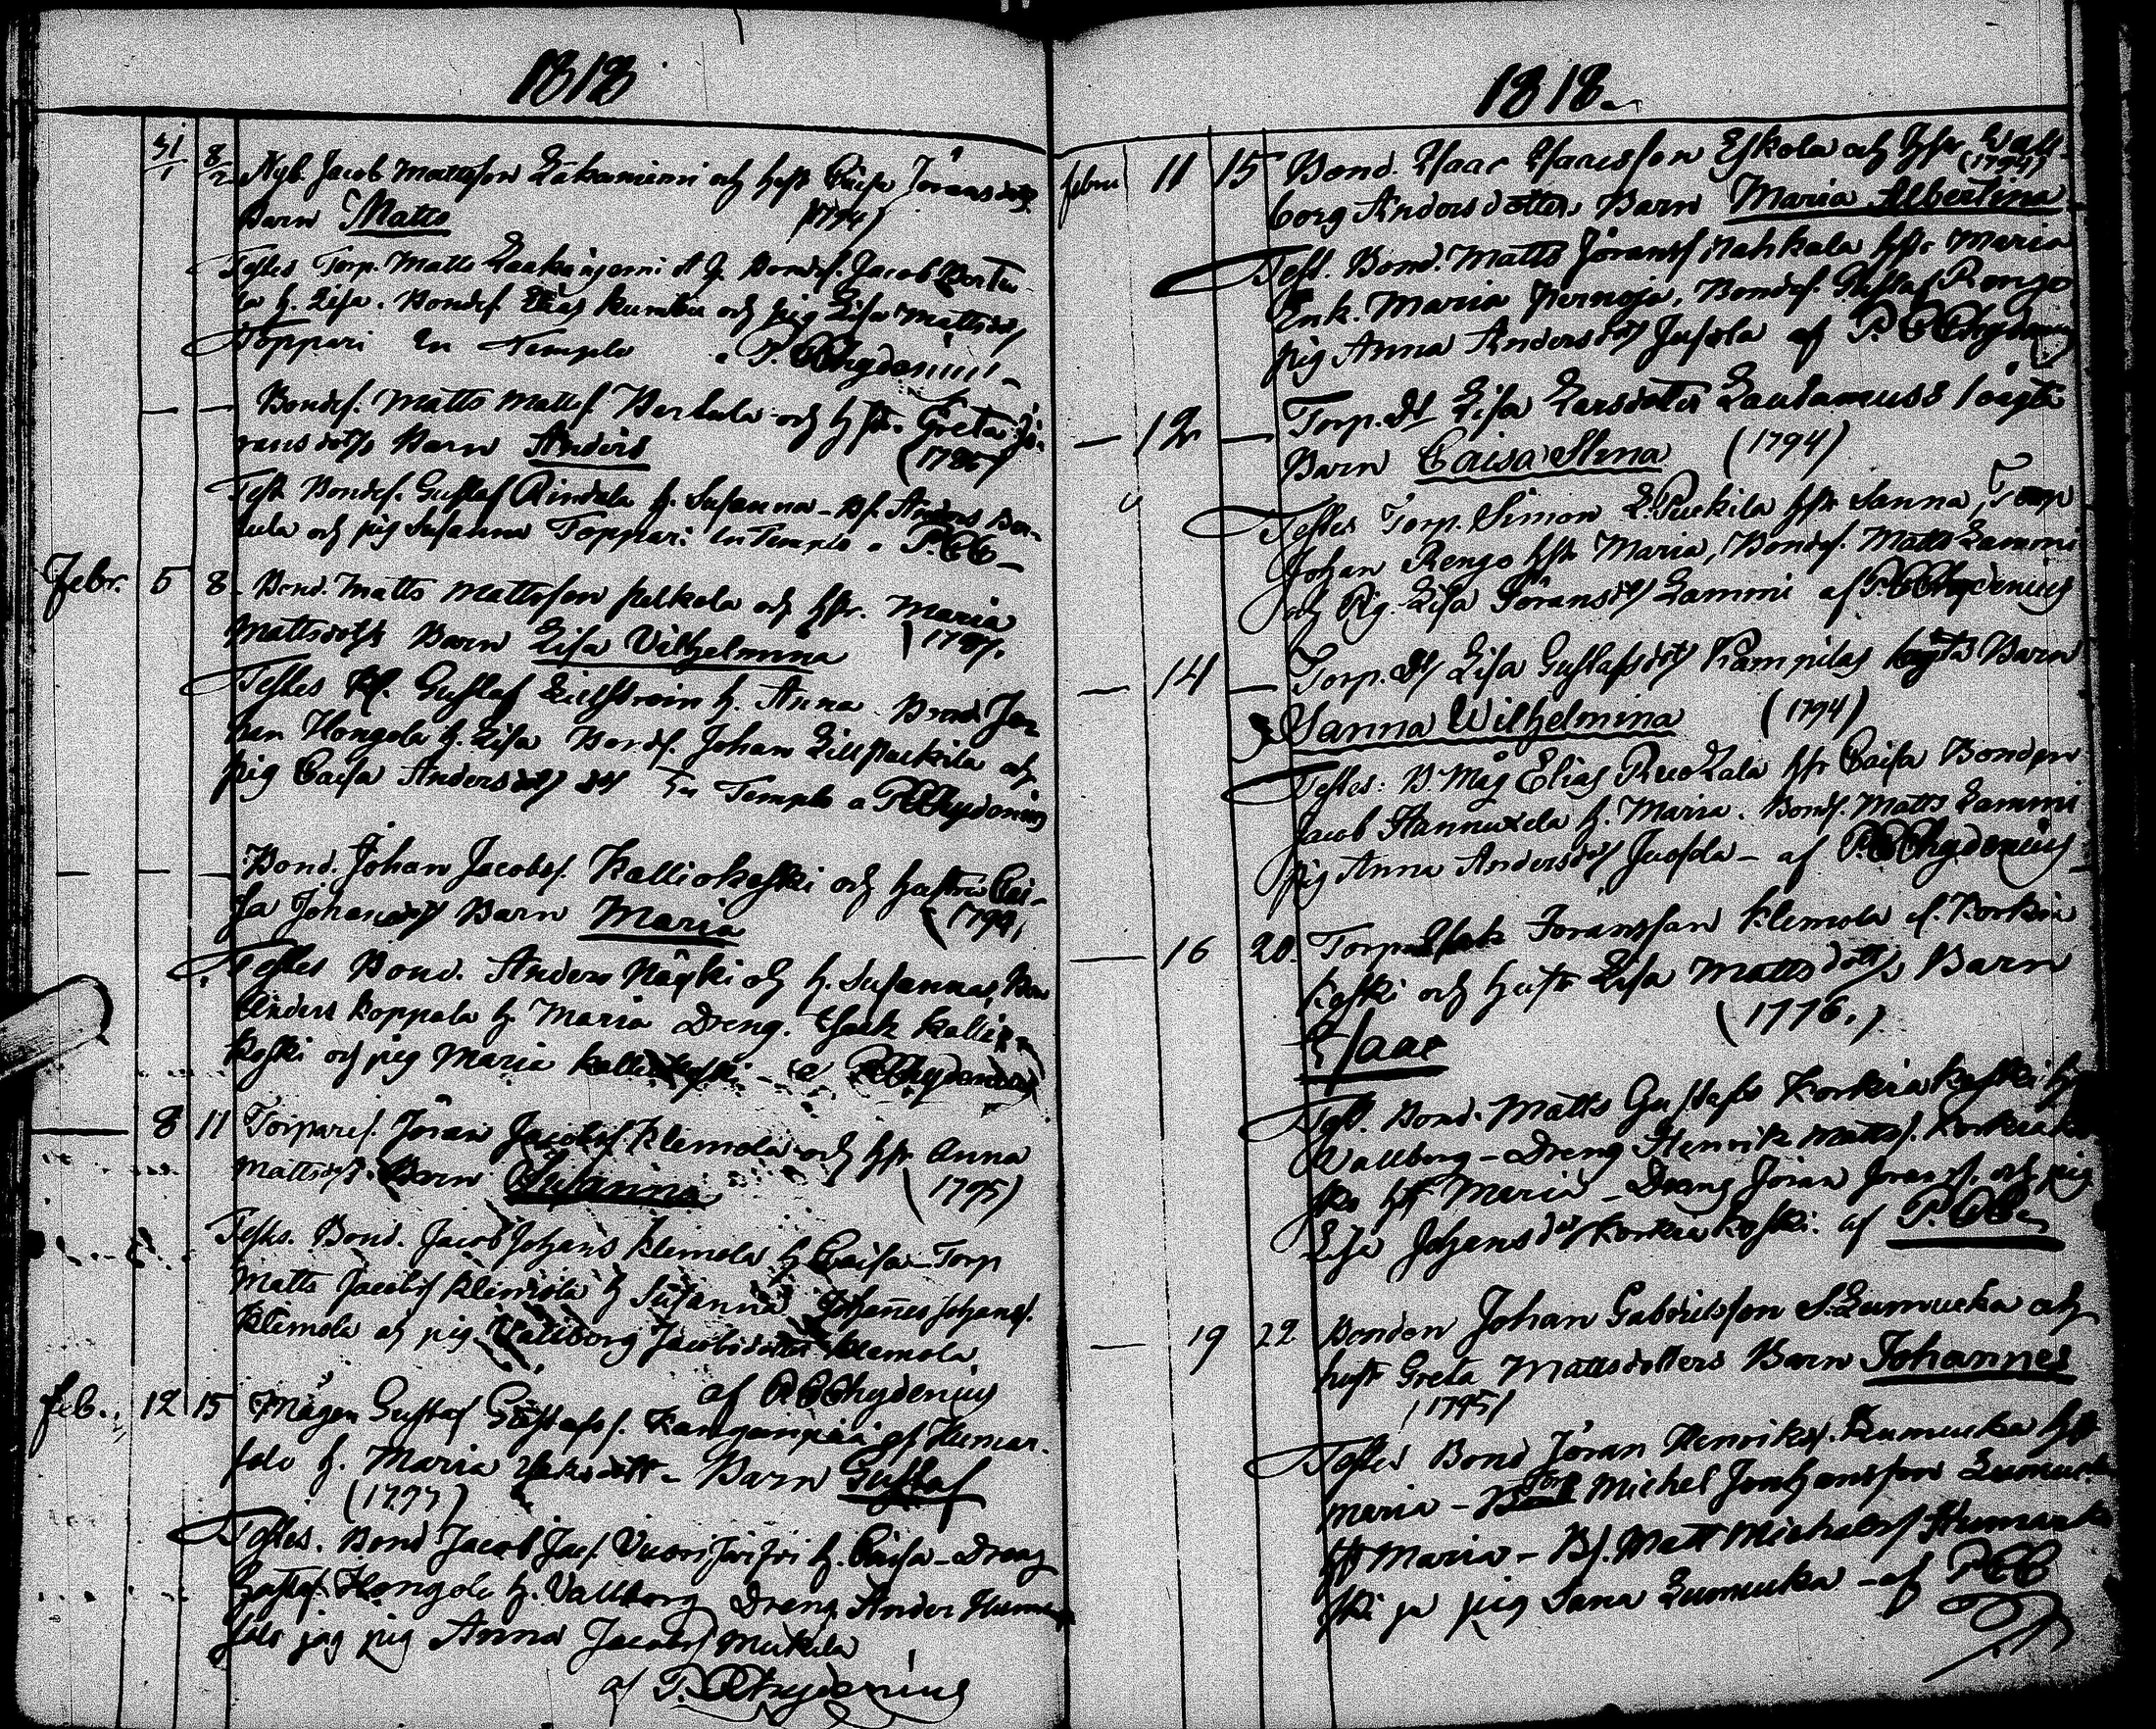 1818
31/1 8/2 Nyb. Jacob Mattsson och hust Caisa Jöransdotr
Barn Matts (1794)
Testes Torp. Matts Bondes. Jacob Pertu
la h. Lisa. Bondes. Elias Kumbu och pig Lisa Mattsdr
Toppari In Templo a P. Chydenius
— — Bondes. Matts Mattss. Pertula och hstr. Greta Jö-
ransdotrs Barn Anders (1785)
Test. Bondes. Gustaf Rindala h. Susanna - Bs. Anders Per-
tula och pig Susanna Toppari In Templo a P. C.
Febr. 5 8 Bond. Matts Mattsson Palkola och hstr. Maria
Mattsdotrs Barn Lisa Vilhelmina (1797.
Testes Gustaf h. Anna Bond. Jo-
han Hongola h. Lisa Bondes. Johan Lillpuckila och
pig Caisa Andersdotr In Templo a P. Chydenius
— — — Bond. Johan Jacobs. Kalliokoski och hustru Cai-
sa Johansdr Barn Maria
Testes Bond. Anders Näski och h. Susanna, Bon
Anders Koppala h. Maria Dreng. Isack Kallio
koski och pig Maria Kalliokoski - a P. Chydenius
— 8 11 Torpares. Jöran Jacobs. Klemola och hstr Anna
Mattsdotr. Barn Susanna (1795)
Testes. Bond. Jacob Johans Klemola h Caisa - Torp
Matts Jacobs Klemola h Susanna Johannes Johans.
Klemola och pig. Vallborg Jacobsdotter Klemola
af P. Chydenius
feb. 12 15 Mågen Gustaf Gustafs. Kanganpää af Humar-
salo h. Maria Isaksdott - Barn Gustaf
(1777)
Testes. Bond Jacob Jac. Vuorijärfvi h. Caisa - Dreng
Gustaf Hongola h. Vallborg Dreng Anders Humar
salo jag pig Anna Jacobs Mickila
af P. Chydenius
1818.
febru 11 15 Bond. Isaac Isacsson Eskola och hstr Wall-
borg Andersdotters Barn Maria Albertina
(1794)
Test. Bond. Matts Jörans Nahkala hstr Maria
Enk. Maria Pernoja, Bondes. Gustaf Rengo
pig Anna Andersdr Jusola af P. Chydenius
— 12 — Torp. Dr Lisa Larsdoter Lautamuss oägta
Barn Caisa Stina (1794)
Testes Torp. Simon L. Puckila hstr Sanna, Torp
Johan Rengo hstr Maria, Bondes. Matts Lammi
och Pig. Lisa Göransdr Lammi af P. Chydenius
— 14 — Torp. Dr Lisa Gustafsdr Kampilas oägta Barn
Sanna Wilhelmina (1794)
Testes: B. Måg Elias Ruokala hstr Caisa Bonden
Jacob Hannuxela h. Maria. Bonds. Matts Lammi
pig Anna Andersdr Juosola - af P. Chydenius
— 16 20. Torpar Isak Joransson Klemola af. Korkia
koski och hustr Lisa Mattsdotts Barn
(1776.)
Isaac
Test. Bond. Matts Gustafs Korkiakoski h
Wallborg - Dreng Henrik Matts. Korkiako
ski hst Maria - Dreng Jöran Jorans. och pig
Lisa Johansdr Korkiakoski. af P. C.
— 19 22 Bonden Johan Gabrielsson S. Lumucka och
hustr Greta Mattsdotters Barn Johannes
(1795)
Testes Bond Jöran Henriks. Lumucka hst
Maria - Torp Michel Johansson Lumucka
hst Maria - Bs. Matt Michaels Humasto
ski ja pig Sana Lumucka - af P C